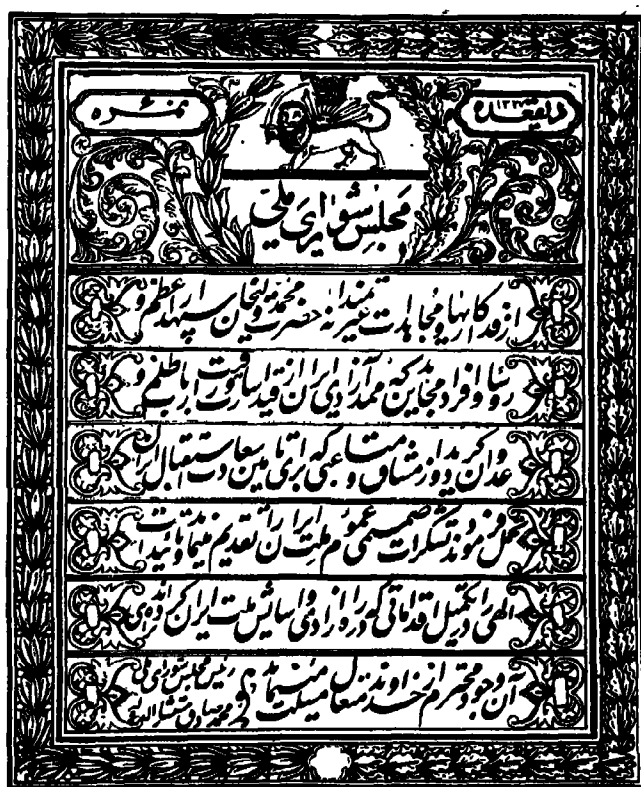 ذیقعده ۱۳۲۷
نمره
مجلس شورای ملی
از فداکاریها و مجاهدات غیرتمندانه حضرت محمد ولیخان سپهدار اعظم و
رؤسا و افراد مجاهدین که ممد آزادی ایران از قید اسارت و رقیت ارباب ظلم و
عدوان گردید و از مشاق و متاعبی که برای تامین سعادت استقبال ایران
تحمل فرمودند تشکرات صمیمی عموم ملت ایران را تقدیم مینماید و تائیدات
الهی را در تکمیل اقداماتی که در راه آزادی و آسایش ملت ایران کرده‌اند برای
آن وجود محترم از خداوند متعال مسئلت مینماید
رئیس مجلس شورای ملی
محمد صادق مستشارالدوله